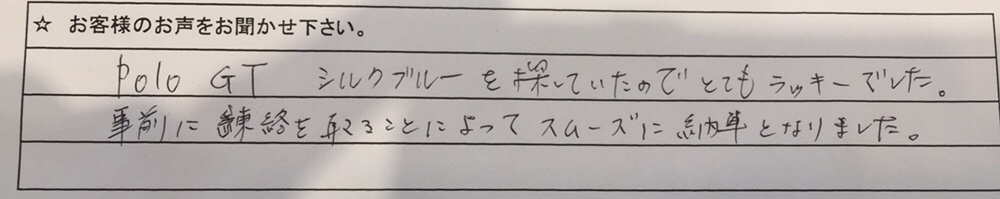 ☆ お客様のお声をお聞かせ下さい。
Polo GT シルクブルーを探していたのでとてもラッキーでした。
事前に練絡を取ることによってスムーズに納車となりました。